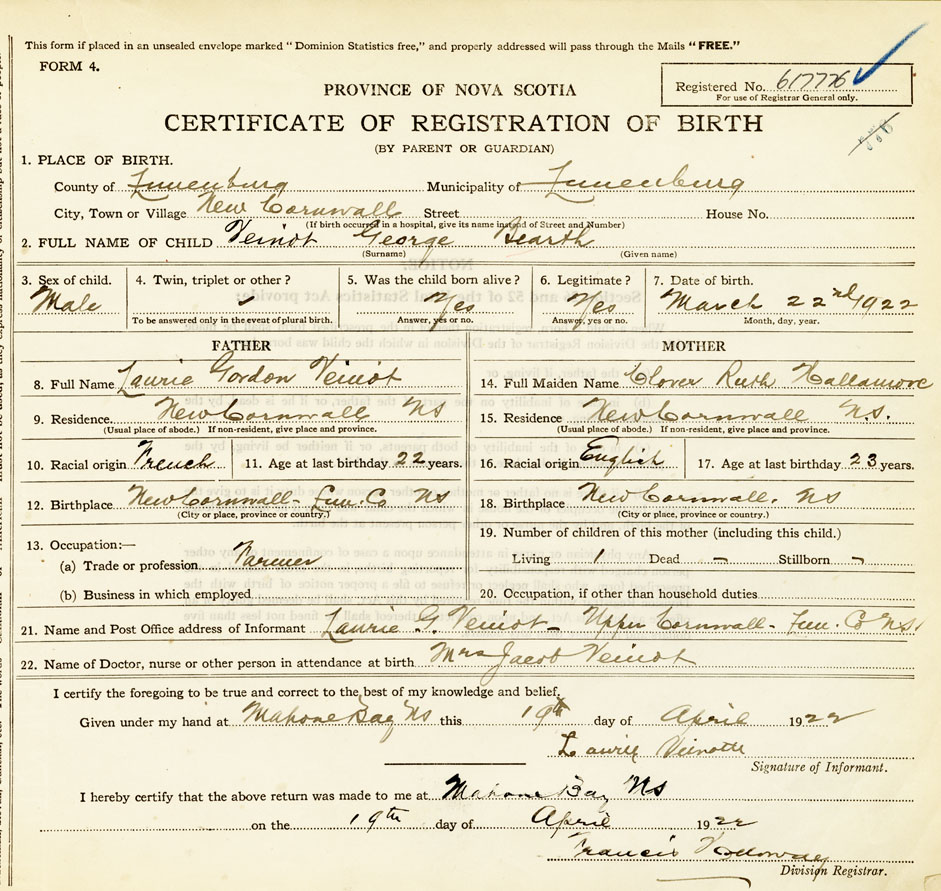 This form if placed in an unsealed envelope marked "Dominion Statistics free," and properly addressed will pass through the Mails "FREE."
FORM 4.
Registered No. 617776
For use of Registrar General only.
PROVINCE OF NOVA SCOTIA
CERTIFICATE OF REGISTRATION OF BIRTH
(BY PARENT OR GUARDIAN)
1. PLACE OF BIRTH.
County of Lunenburg Municipality of Lunenburg
City, Town or Village New Cornwall Street House No.
(If birth occurred in a hospital, give its name instead of Street and Number)
2. FULL NAME OF CHILD Veinot George
(Surname) (Given name)
3. Sex of child. 4. Twin, triplet or other? 5. Was the child born alive? 6. Legitimate? 7. Date of birth.
Male Yes Yes March 22nd 1922
To be answered only in the event of plural birth. Answer, yes or no. Answer, yes or no. Month, day, year.
FATHER MOTHER
8. Full Name Laurie Gordon Veinot 14. Full Maiden Name Clover Ruth Hallamore
9. Residence New Cornwall NS 15. Residence New Cornwall NS.
(Usual place of abode.) If non-resident, give place and province. (Usual place of abode.) If non-resident, give place and province.
10. Racial origin French 11. Age at last birthday 22 years. 16. Racial origin English 17. Age at last birthday 23 years.
12. Birthplace New Cornwall - Lun. Co NS 18. Birthplace New Cornwall. NS
(City or place, province or country.) (City or place, province or country.)
13. Occupation:— 19. Number of children of this mother (including this child.)
(a) Trade or profession Farmer Living 1 Dead - Stillborn -
(b) Business in which employed 20. Occupation, if other than household duties
21. Name and Post Office address of Informant Laurie G. Veinot - Upper Cornwall - Lun. Co NS
22. Name of Doctor, nurse or other person in attendance at birth Mrs Jacob Veinot
I certify the foregoing to be true and correct to the best of my knowledge and belief.
Given under my hand at Mahone Bay NS this 19th day of April 1922
Laurie Veinotte
Signature of Informant.
I hereby certify that the above return was made to me at Mahone Bay NS
on the 19th day of April 1922
Francis
Division Registrar.